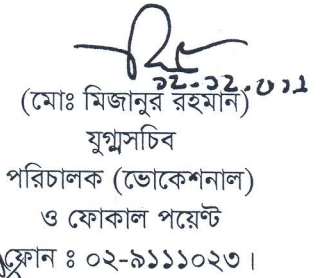 (মোঃ মিজানুর রহমান)
যুগ্মসচিব
পরিচালক (ভোকেশনাল)
ও ফোকাল পয়েন্ট
ফোন ঃ ০২-৯১১১০২৩।